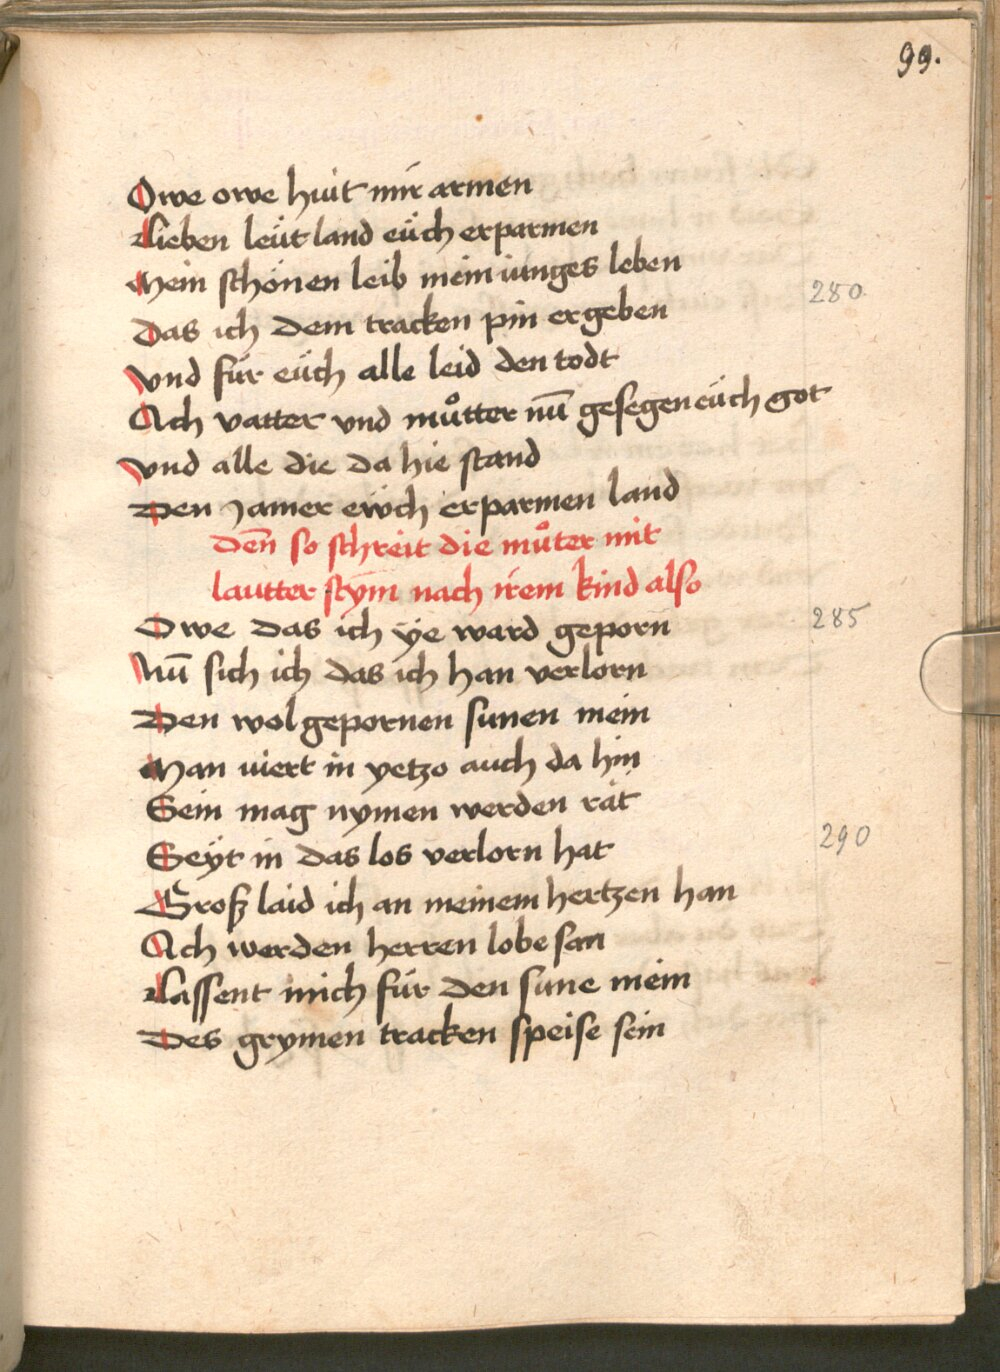 99.
Owe owe hüt mir armen
Lieben leüt land eüch erparmen
Mein schönen leib mein iunges leben
280.
Das ich dem tracken pin ergeben
Vnd für eüch alle leid den todt
Ach vatter vnd můtter nū gesegen eüch got
Vnd alle die da hie stand
Den Jamer ewch erparmen land
Den̄ so schreit die můter mit
lautter stym̄ nach irem kind also
Owe das ich ÿe ward geporn
285
Nū sich ich das ich han verlorn
Den wolgepornen sunen mein
Man viert in yetzo auch da hin
Sein mag nymen werden rät
Seÿt in das los verlorn hat
290
Groß laid ich an meinem hertzen han
Ach werden herren lobesan
Lassent mich für den sune mein
Des grymen tracken speise sein